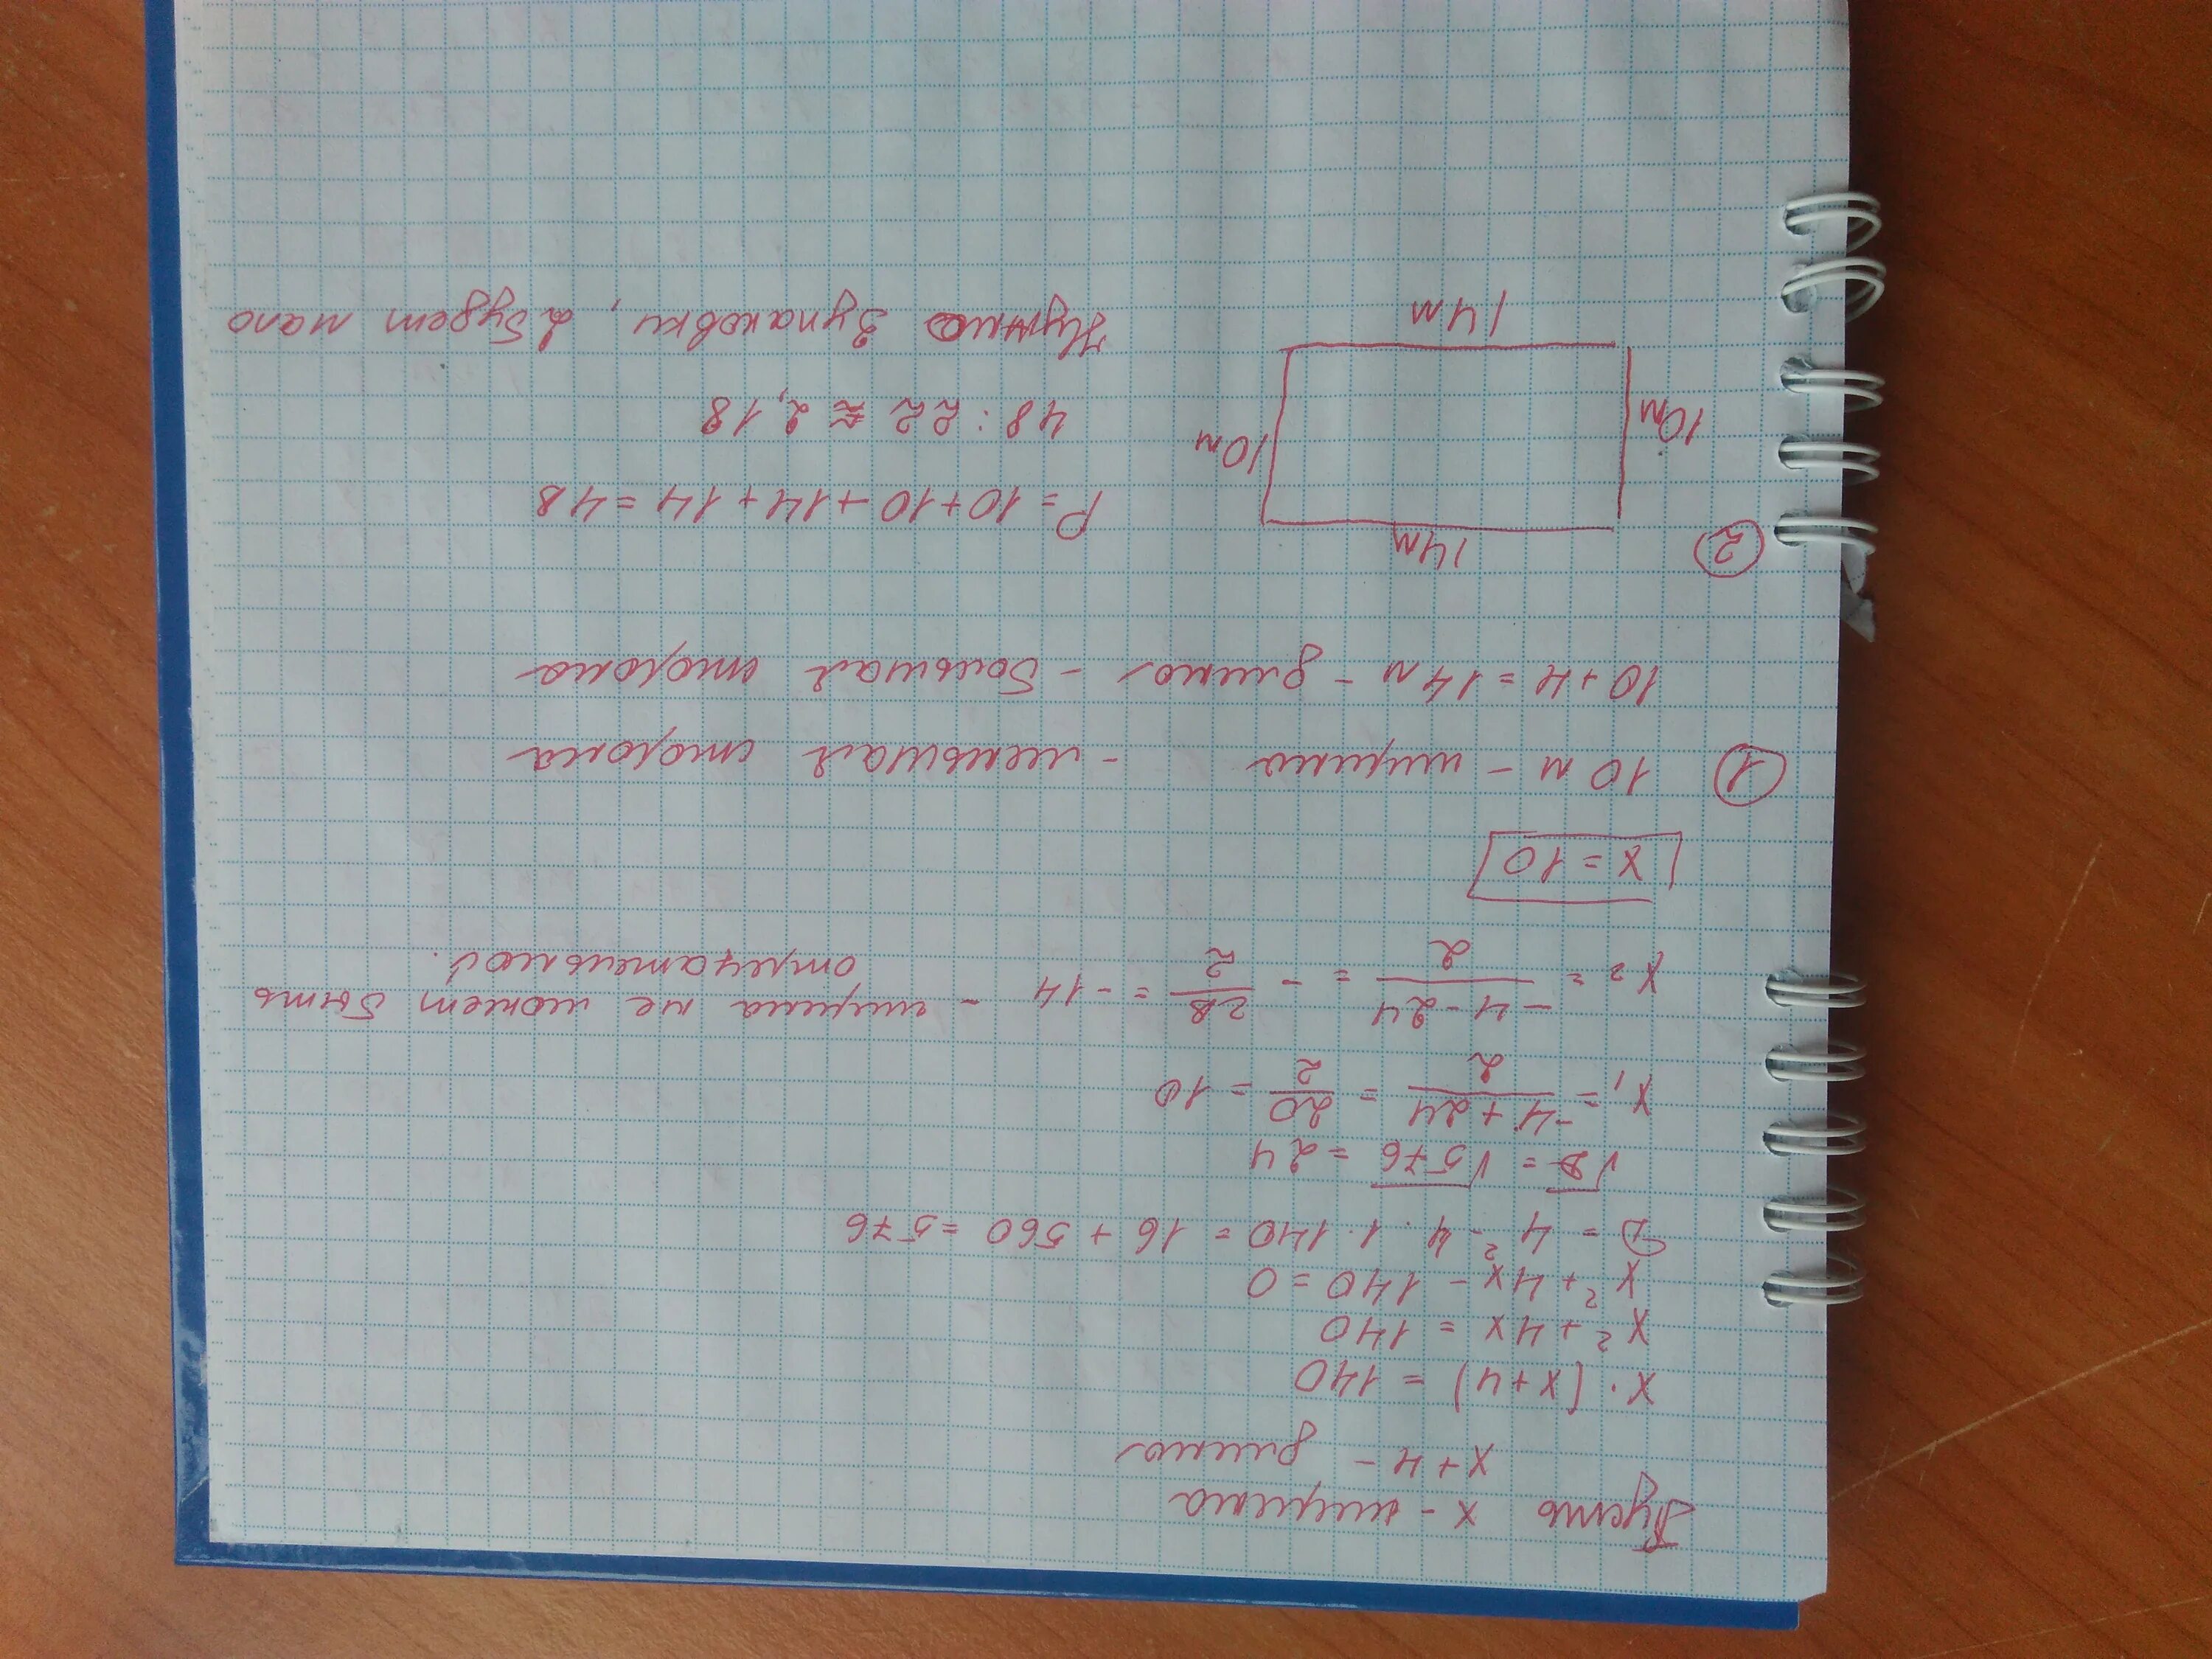 Пусть x - ширина
x+4 - длина
x·(x+4) = 140
x²+4x = 140
x²+4x - 140 = 0
D = 4²-4·1·140 = 16 + 560 = 576
√D = √576 = 24
x₁ = (-4+24)/2 = 20/2 = 10
x₂ = (-4-24)/2 = -28/2 = -14 - ширина не может быть отрицательной.
x = 10
① 10 м - ширина - меньшая сторона
10+4 = 14 м - длина - большая сторона
②
14м
10м
10м
14м
P = 10+10+14+14 = 48
48 : 22 ≈ 2,18
Нужно 3 упаковки, 2 будет мало